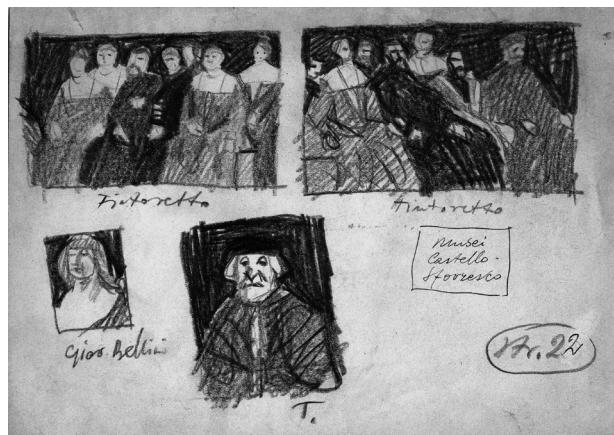 Tintoretto
tintoretto
Musei
Castello-
Sforzesco
Giov. Bellini
T.
Nr. 22